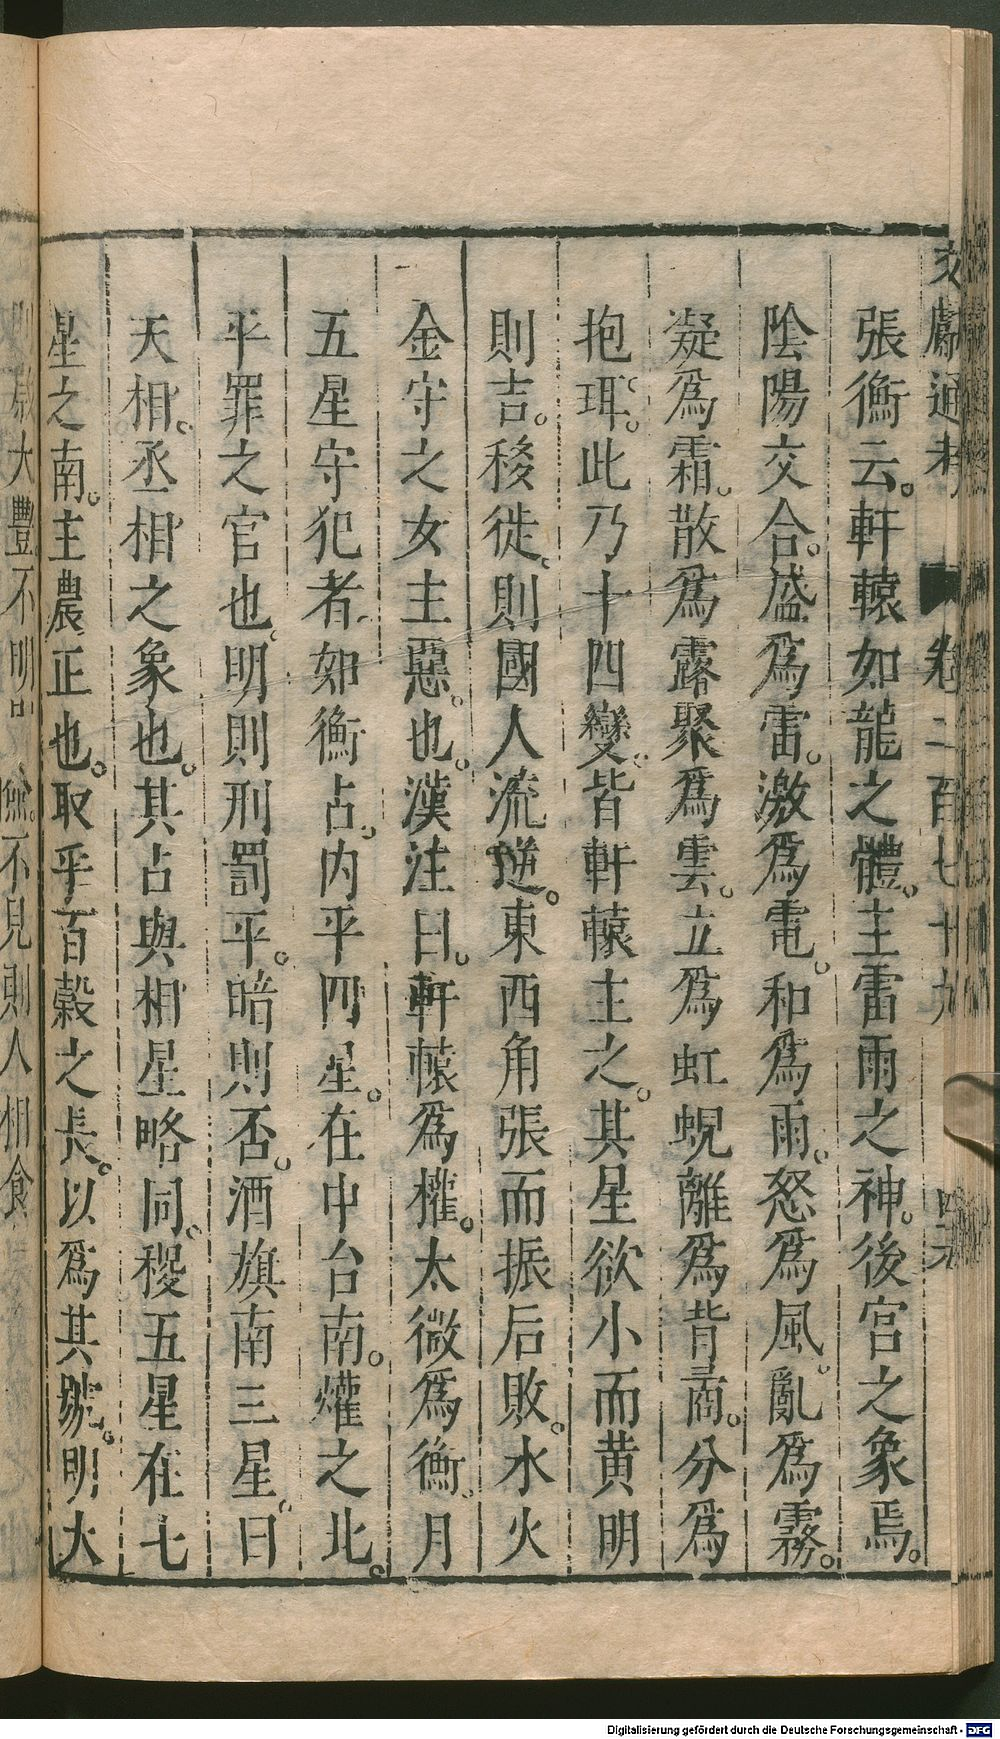 文獻通考 卷二百七十九
張衡云。軒轅如龍之體。主雷雨之神。後宮之象焉。
陰陽交合。盛爲雷。激爲電。和爲雨。怒爲風。亂爲霧。
凝爲霜。散爲露聚爲雲。立爲虹蜺離爲背矞。分爲
抱珥。此乃十四變。皆軒轅主之。其星欲小而黄明
則吉。移徙。則國人流逆。東西角張而振后敗。水火
金守之女主惡。也。漢注曰。軒轅爲權。太微爲衡。月
五星守犯者。如衡占。内平四星。在中台南。爟之北。
平罪之官也。明則刑罰平。暗則否。酒旗南三星。曰
天相。丞相之象也。其占與相星略同。稷五星在七
星之南。主農正也。取乎百穀之長。以爲其號。明大
大豐不明
不見則人相食
Digitalisierung gefördert durch die Deutsche Forschungsgemeinschaft - DFG